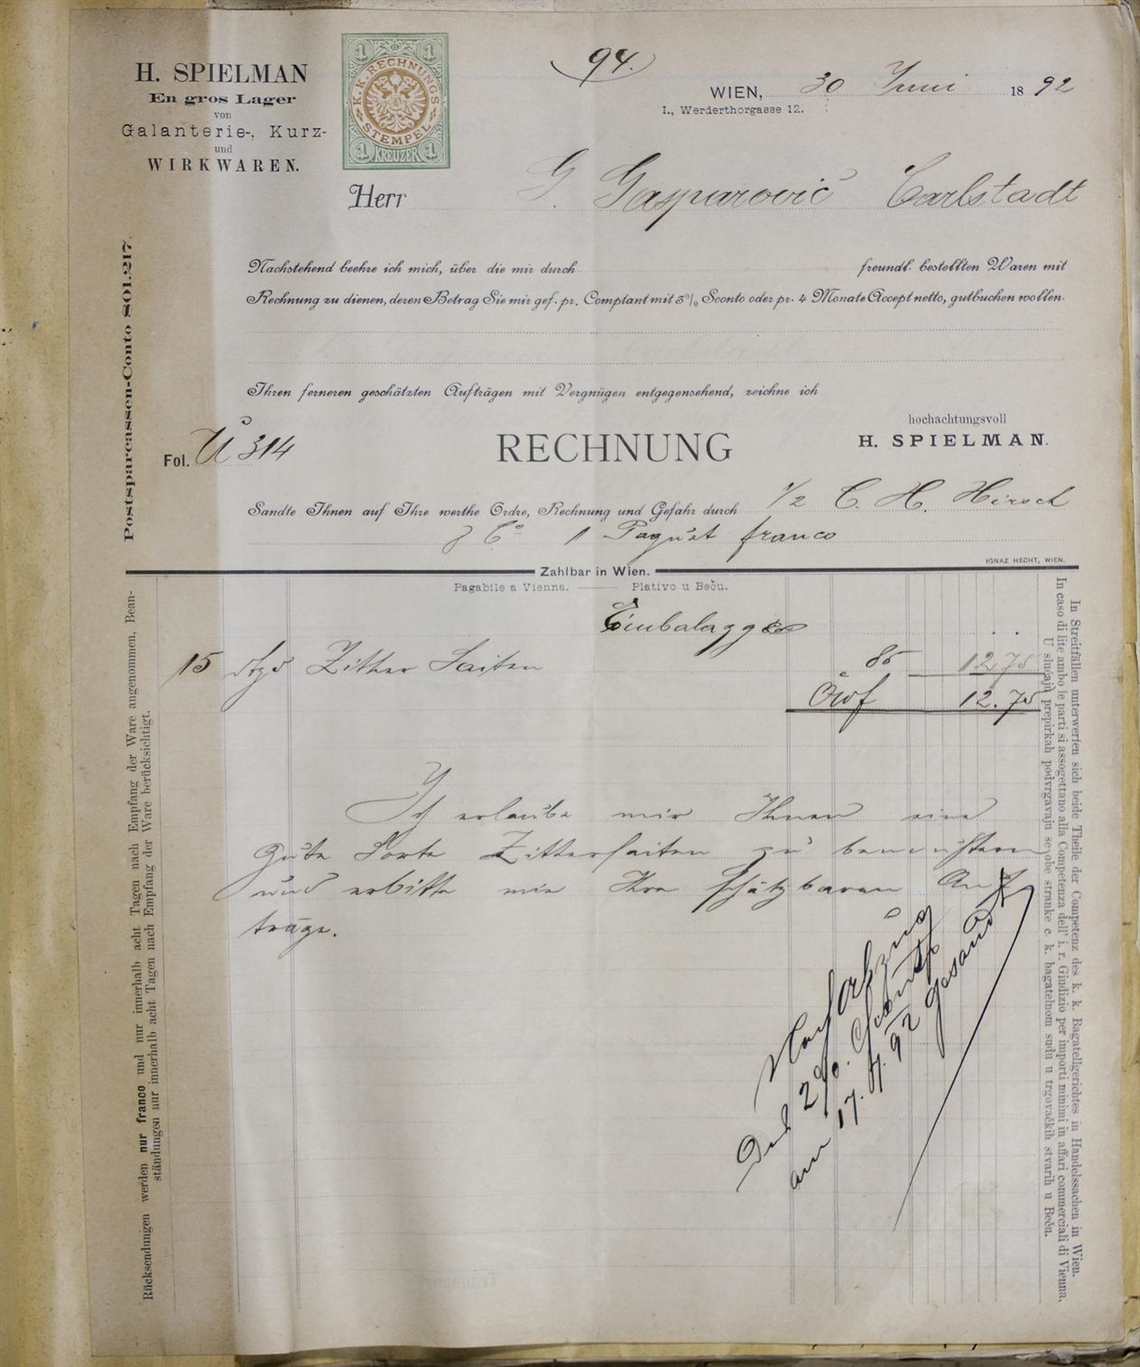 94.
H. SPIELMAN
En gros Lager
von
Galanterie-, Kurz-
und
WIRKWAREN.
1 1
K. K. RECHNUNGS STEMPEL
1 KREUZER 1
WIEN, 30 Juni 1892
I., Werderthorgasse 12.
Herr G. Gasparović Carlstadt
Nachstehend beehre ich mich, über die mir durch freundl. bestellten Waren mit
Rechnung zu dienen, deren Betrag Sie mir gef. pr. Comptant mit 3% Sconto oder pr. 4 Monate Accept netto, gutbuchen wollen.
Ihren ferneren geschätzten Aufträgen mit Vergnügen entgegensehend, zeichne ich
hochachtungsvoll
H. SPIELMAN.
Postsparcassen-Conto 801.217.
Fol. U 314
RECHNUNG
Sandte Ihnen auf Ihre werthe Ordre, Rechnung und Gefahr durch C. H. Hirsch
& Co 1 Paquet franco
IGNAZ HECHT, WIEN.
Zahlbar in Wien.
Pagabile a Vienna. Plativo u Beču.
Emballage
15 Zither Saiten 85 12.75
12.75
Ich erlaube mir Ihnen eine
gute Sorte Zittersaiten zu bemustern
und erbitte mir Ihre schätzbaren Auf
träge.
Nach abzug
2%. Sconto
am 17.7.92 gesandt
Rücksendungen werden nur franco und nur innerhalb acht Tagen nach Empfang der Ware angenommen. Bean-
ständungen nur innerhalb acht Tagen nach Empfang der Ware berücksichtigt.
In Streitfällen unterwerfen sich beide Theile der Competenz des k. k. Bagatellgerichtes in Handelssachen in Wien.
In caso di lite ambo le parti si assogettano alla Competenza dell' i. r. Giudizio per importi minimi in affari commerciali di Vienna.
U slučaju prepirkah podvrgavaju se obe stranke c. k. bagatelnom sudu u trgovačkih stvarih u Beču.